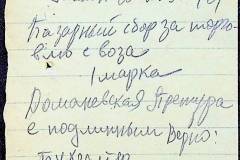 Базарный сбор за торго-
влю с воза
1 марка
Доманевская Претура
с подлинным верно:
Бухгалтер